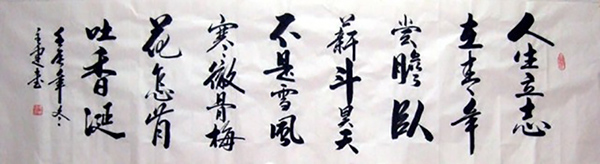 人生立志
在青年
嘗膽臥
薪斗昊天
不是雪風
寒徹骨梅
花怎肯
吐香涎
壬辰年冬